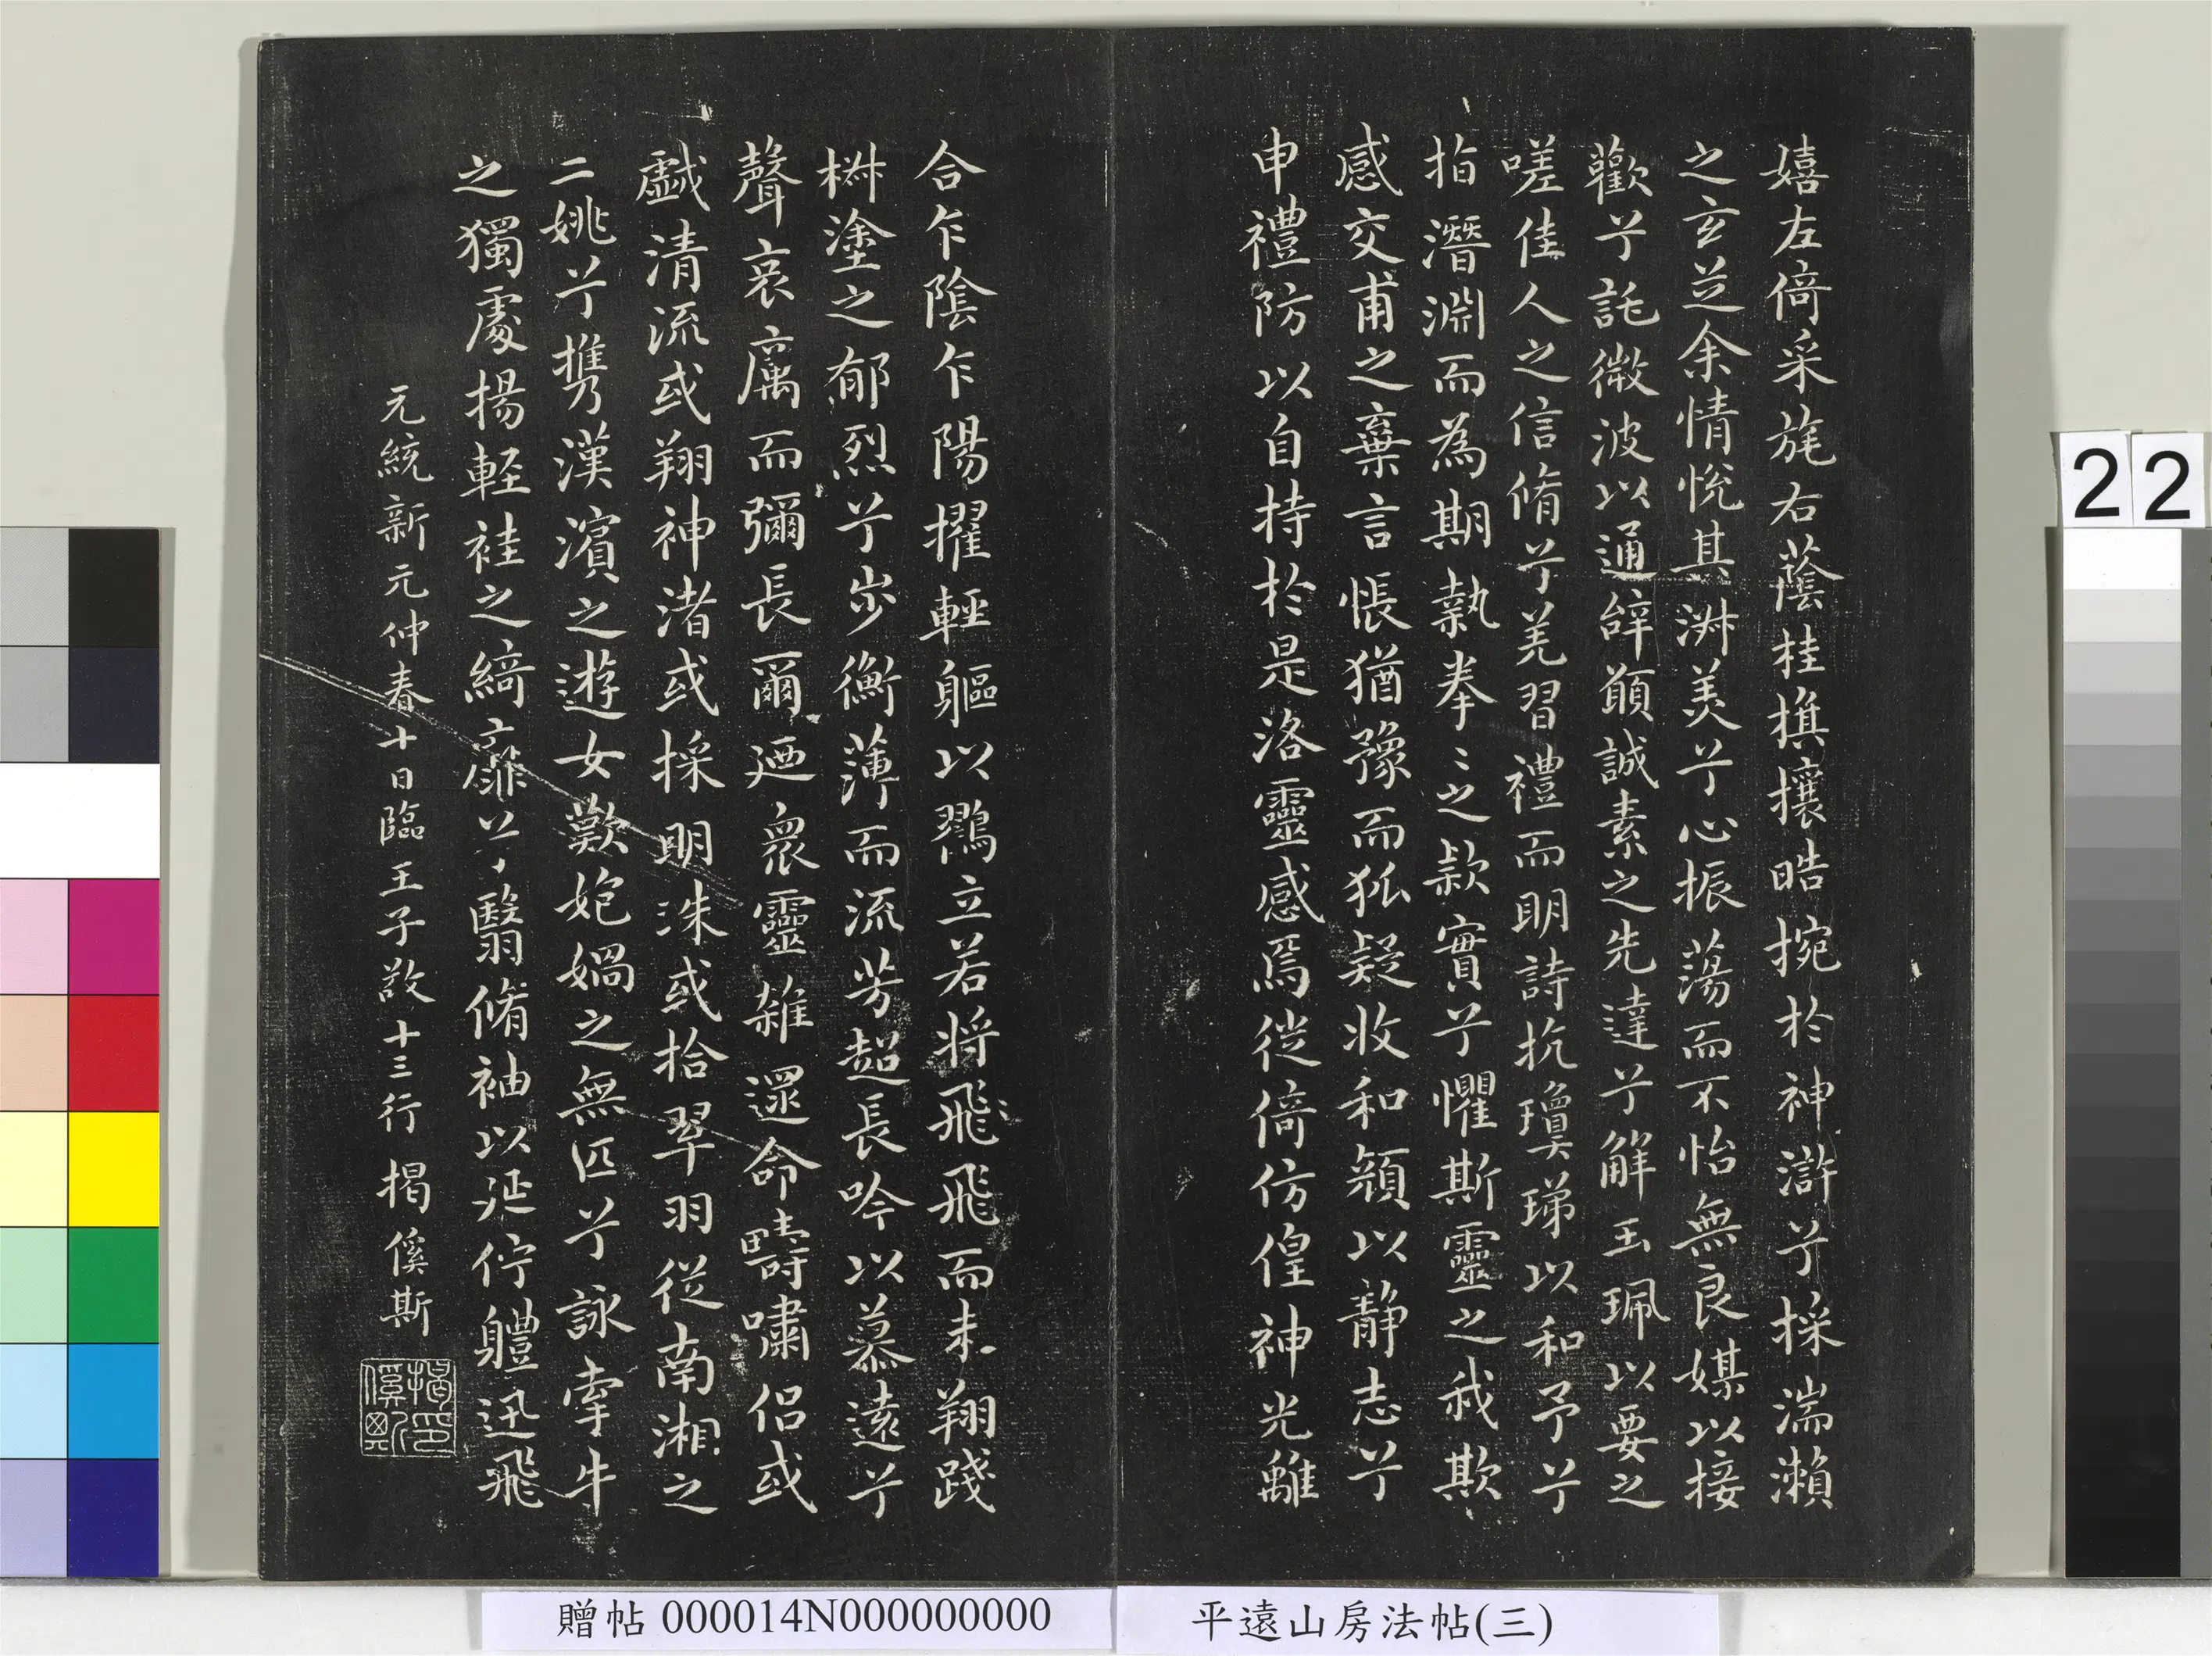 嬉左倚采旄右蔭桂旗攘皓捥於神滸兮採湍瀨
之玄芝余情悅其淑美兮心振蕩而不怡無良媒以接
歡兮託微波以通辭願誠素之先達兮解玉珮以要之
嗟佳人之信脩兮羌習禮而明詩抗瓊珶以和予兮
指潛淵而為期執拳〻之款實兮懼斯靈之我欺
感交甫之棄言悵猶豫而狐疑收和顏以靜志兮
申禮防以自持於是洛靈感焉從倚仿偟神光離
合乍陰乍陽擢輕軀以鶴立若將飛飛而未翔踐
椒塗之郁烈兮步衡薄而流芳超長吟以慕遠兮
聲哀厲而彌長爾迺衆靈雜遝命疇嘯侶或
戲清流或翔神渚或採明珠或拾翠羽從南湘之
二姚兮攜漢濱之遊女歎匏媧之無匹兮詠牽牛
之獨處揚輕袿之綺靡兮翳脩袖以延佇軆迅飛
元統新元仲春十日臨王子敬十三行 揭傒斯
揭傒斯印
贈帖 000014N000000000
平遠山房法帖(三)
22